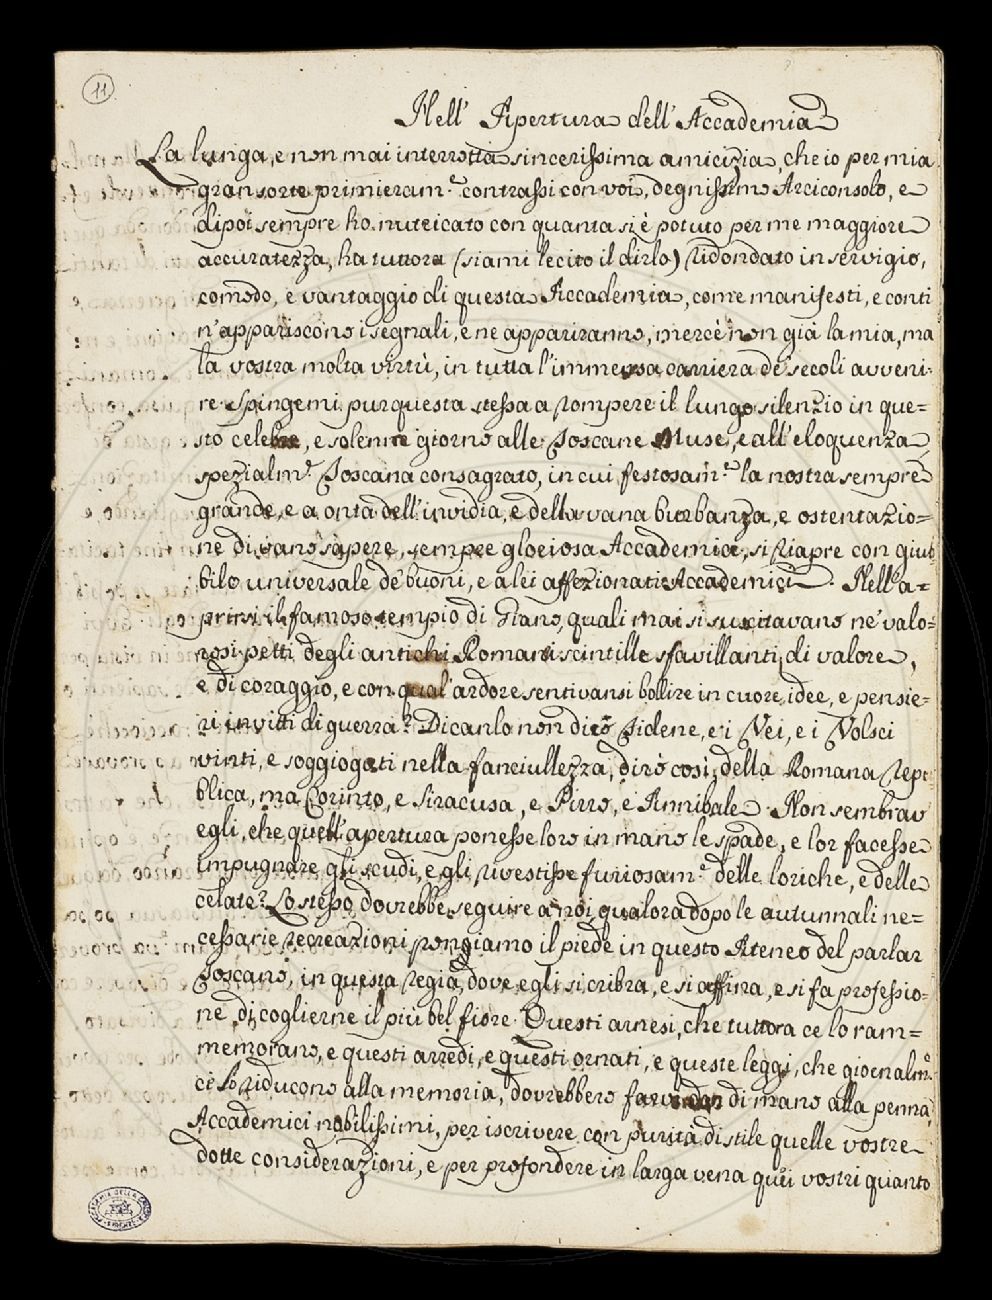 11
Nell' Apertura dell' Accademia
La lunga, e non mai interrotta sincerissima amicizia, che io per mia
gran sorte primieram.e contrassi con voi, degnissimo Arciconsolo, e
dipoi sempre ho nutricato con quanta si è potuto per me maggiore
accuratezza, ha tuttora (siami lecito il dirlo) ridondato in servigio,
comodo, e vantaggio di questa Accademia, come manifesti, e conti
n'appariscono i segnali, e ne appariranno, mercè non già la mia, ma
la vostra molta virtù, in tutta l'immensa carriera de' secoli avveni-
re. Spingemi pur questa stessa a rompere il lungo silenzio in que=
sto celebre, e solenne giorno alle Toscane Muse, e all' eloquenza
spezialm.e Toscana consagrato, in cui festosam.e la nostra sempre
grande, e a onta dell'invidia, e della vana burbanza, e ostentazio=
ne di vano sapere, sempre gloriosa Accademia, si riapre con giub
bilo universale de' buoni, e a lei affezionati Accademici. Nell'a=
prirsi il famoso tempio di Giano, quali mai si suscitavano ne' valo=
rosi petti degli antichi Romani scintille sfavillanti di valore,
e di coraggio, e con qual' ardore sentivansi bollire in cuore idee, e pensie=
ri invitti di guerra? Dicanlo non dirò Fidene, e i Vei, e i Volsci
vinti, e soggiogati nella fanciullezza, dirò così, della Romana Repu
blica, ma Corinto, e Siracusa, e Pirro, e Annibale. Non sembrav
egli, che quell'apertura ponesse loro in mano le spade, e lor facesse
impugnare gli scudi, e gli rivestisse furiosam.e delle loriche, e delle
celate? Lo stesso dovrebbe seguire a noi, qualora dopo le autunnali ne=
cessarie recreazioni pongiamo il piede in questo Ateneo del parlar
Toscano, in questa regia, dove egli si cribra, e si affina, e si fa professio=
ne di coglierne il più bel fiore. Questi arnesi, che tuttora ce lo ram=
memorano, e questi arredi, e questi ornati, e queste leggi, che giornalm.e
ce lo riducono alla memoria, dovrebbero farvi dar di mano alla penna,
Accademici nobilissimi, per iscrivere con purità di stile quelle vostre
dotte considerazioni, e per profondere in larga vena quei vostri quanto
ACCADEMIA DELLA CRUSCA
FIRENZE